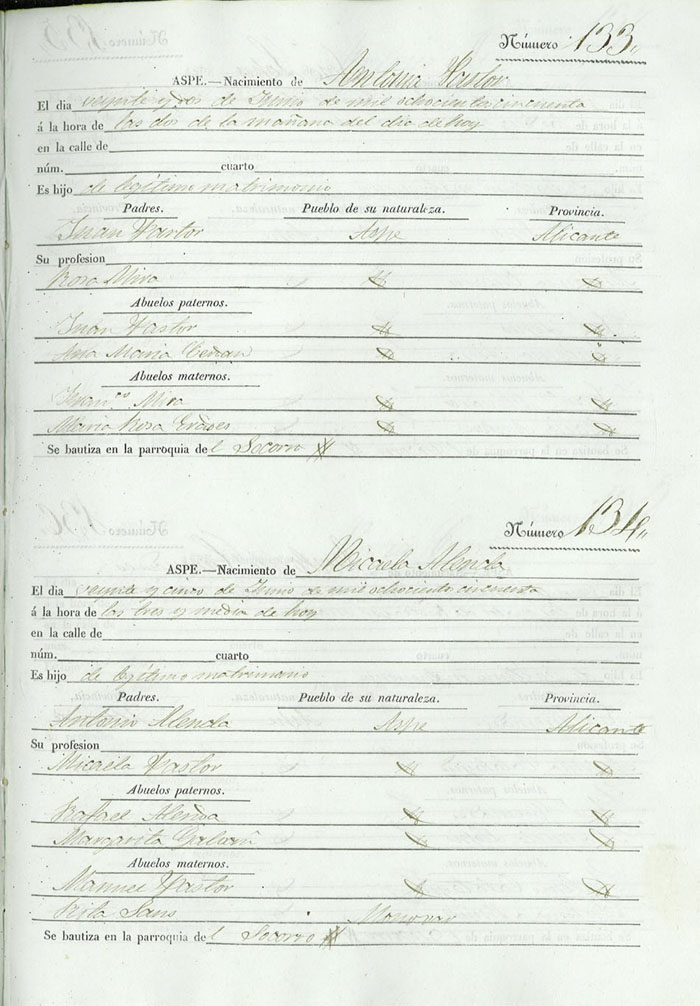 Número 133
ASPE.—Nacimiento de Antonia Pastor
El dia veynte y dos de Junio de mil ochocientos cincuenta
á la hora de las dos de la mañana del dia de hoy
en la calle de
núm. cuarto
Es hijo de legitimo matrimonio
Padres. Pueblo de su naturaleza. Provincia.
Juan Pastor Aspe Alicante
Su profesion
Rosa Mira
Abuelos paternos.
Juan Pastor
Ana Maria
Abuelos maternos.
Franco Mira
Maria Rosa
Se bautiza en la parroquia del Socorro
Número 134
ASPE.—Nacimiento de Micaela Alenda
El dia veinte y cinco de Junio de mil ochociento cincuenta
á la hora de las tres y media de hoy
en la calle de
núm. cuarto
Es hijo de legitimo matrimonio
Padres. Pueblo de su naturaleza. Provincia.
Antonio Alenda Aspe Alicante
Su profesion
Micaela Pastor
Abuelos paternos.
Rafael Alenda
Margarita
Abuelos maternos.
Manuel Pastor
Rita Sans Monovar
Se bautiza en la parroquia del Socorro